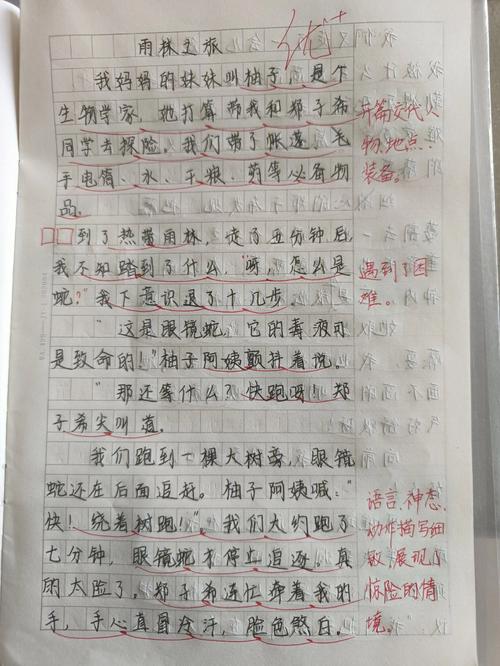 雨林之旅
优+
我妈妈的妹妹叫柚子，是个
生物学家，她打算带我和郑子希
同学去探险。我们带了帐篷、毛
手电筒、水、干粮、药等必备物
品。
开篇交代人
物、地点、
装备。
到了热带雨林，走了五分钟后，
我不知踏到了什么，"呀，怎么是
蛇？"我下意识退了十几步。
遇到了困
难。
"这是眼镜蛇，它的毒液可
是致命的！"柚子阿姨颤抖着说。
"那还等什么？快跑呀！郑
子希尖叫道。
我们跑到一棵大树旁，眼镜
蛇还在后面追赶。柚子阿姨喊："
快！绕着树跑！"，我们大约跑了
七分钟，眼镜蛇才停止追逐。真
的太险了。郑子希连忙牵着我的
手，手心直冒冷汗，脸色煞白。
语言、神态、
动作描写细
致，展现了
惊险的情
境。